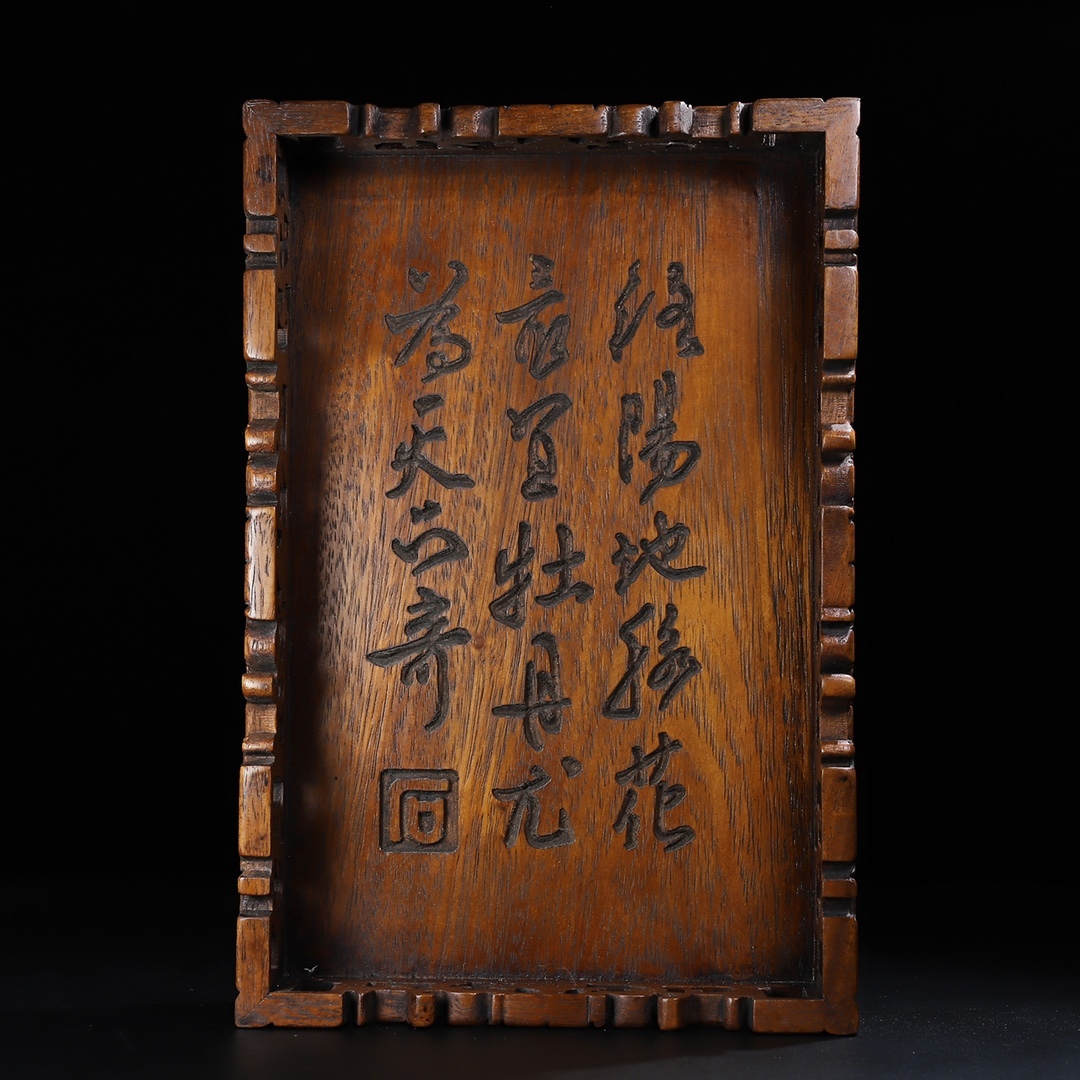 洛陽地脈花
最宜牡丹尤
為天下奇